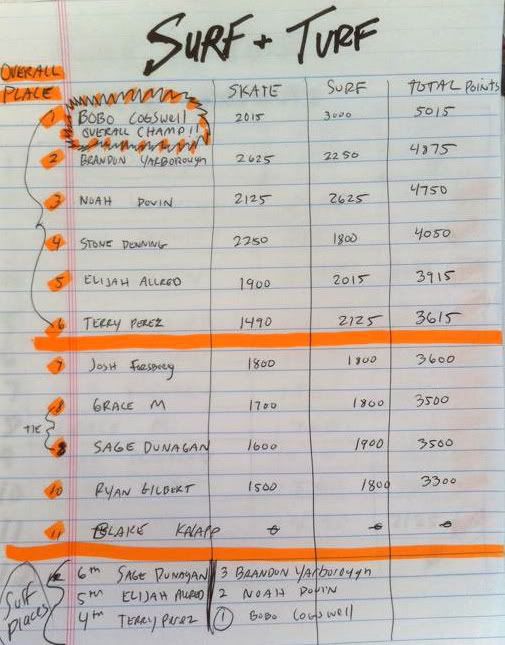 SURF + TURF
OVERALL PLACE SKATE SURF TOTAL POINTS
1 BOBO COGSWELL 2015 3000 5015
OVERALL CHAMP!!
2 BRANDON YARBOROUGH 2625 2250 4875
3 NOAH DOVIN 2125 2625 4750
4 STONE DENNING 2250 1800 4050
5 ELIJAH ALLRED 1900 2015 3915
6 TERRY PEREZ 1490 2125 3615
7 JOSH 1800 1800 3600
8 GRACE M 1700 1800 3500
TIE
8 SAGE DUNAGAN 1600 1900 3500
10 RYAN GILBERT 1500 1800 3300
11 BLAKE 0 0 0
Surf Places
6th SAGE DUNAGAN 3 BRANDON Yarborough
5th ELIJAH ALLRED 2 NOAH DOVIN
4th TERRY PEREZ 1 BOBO COGSWELL